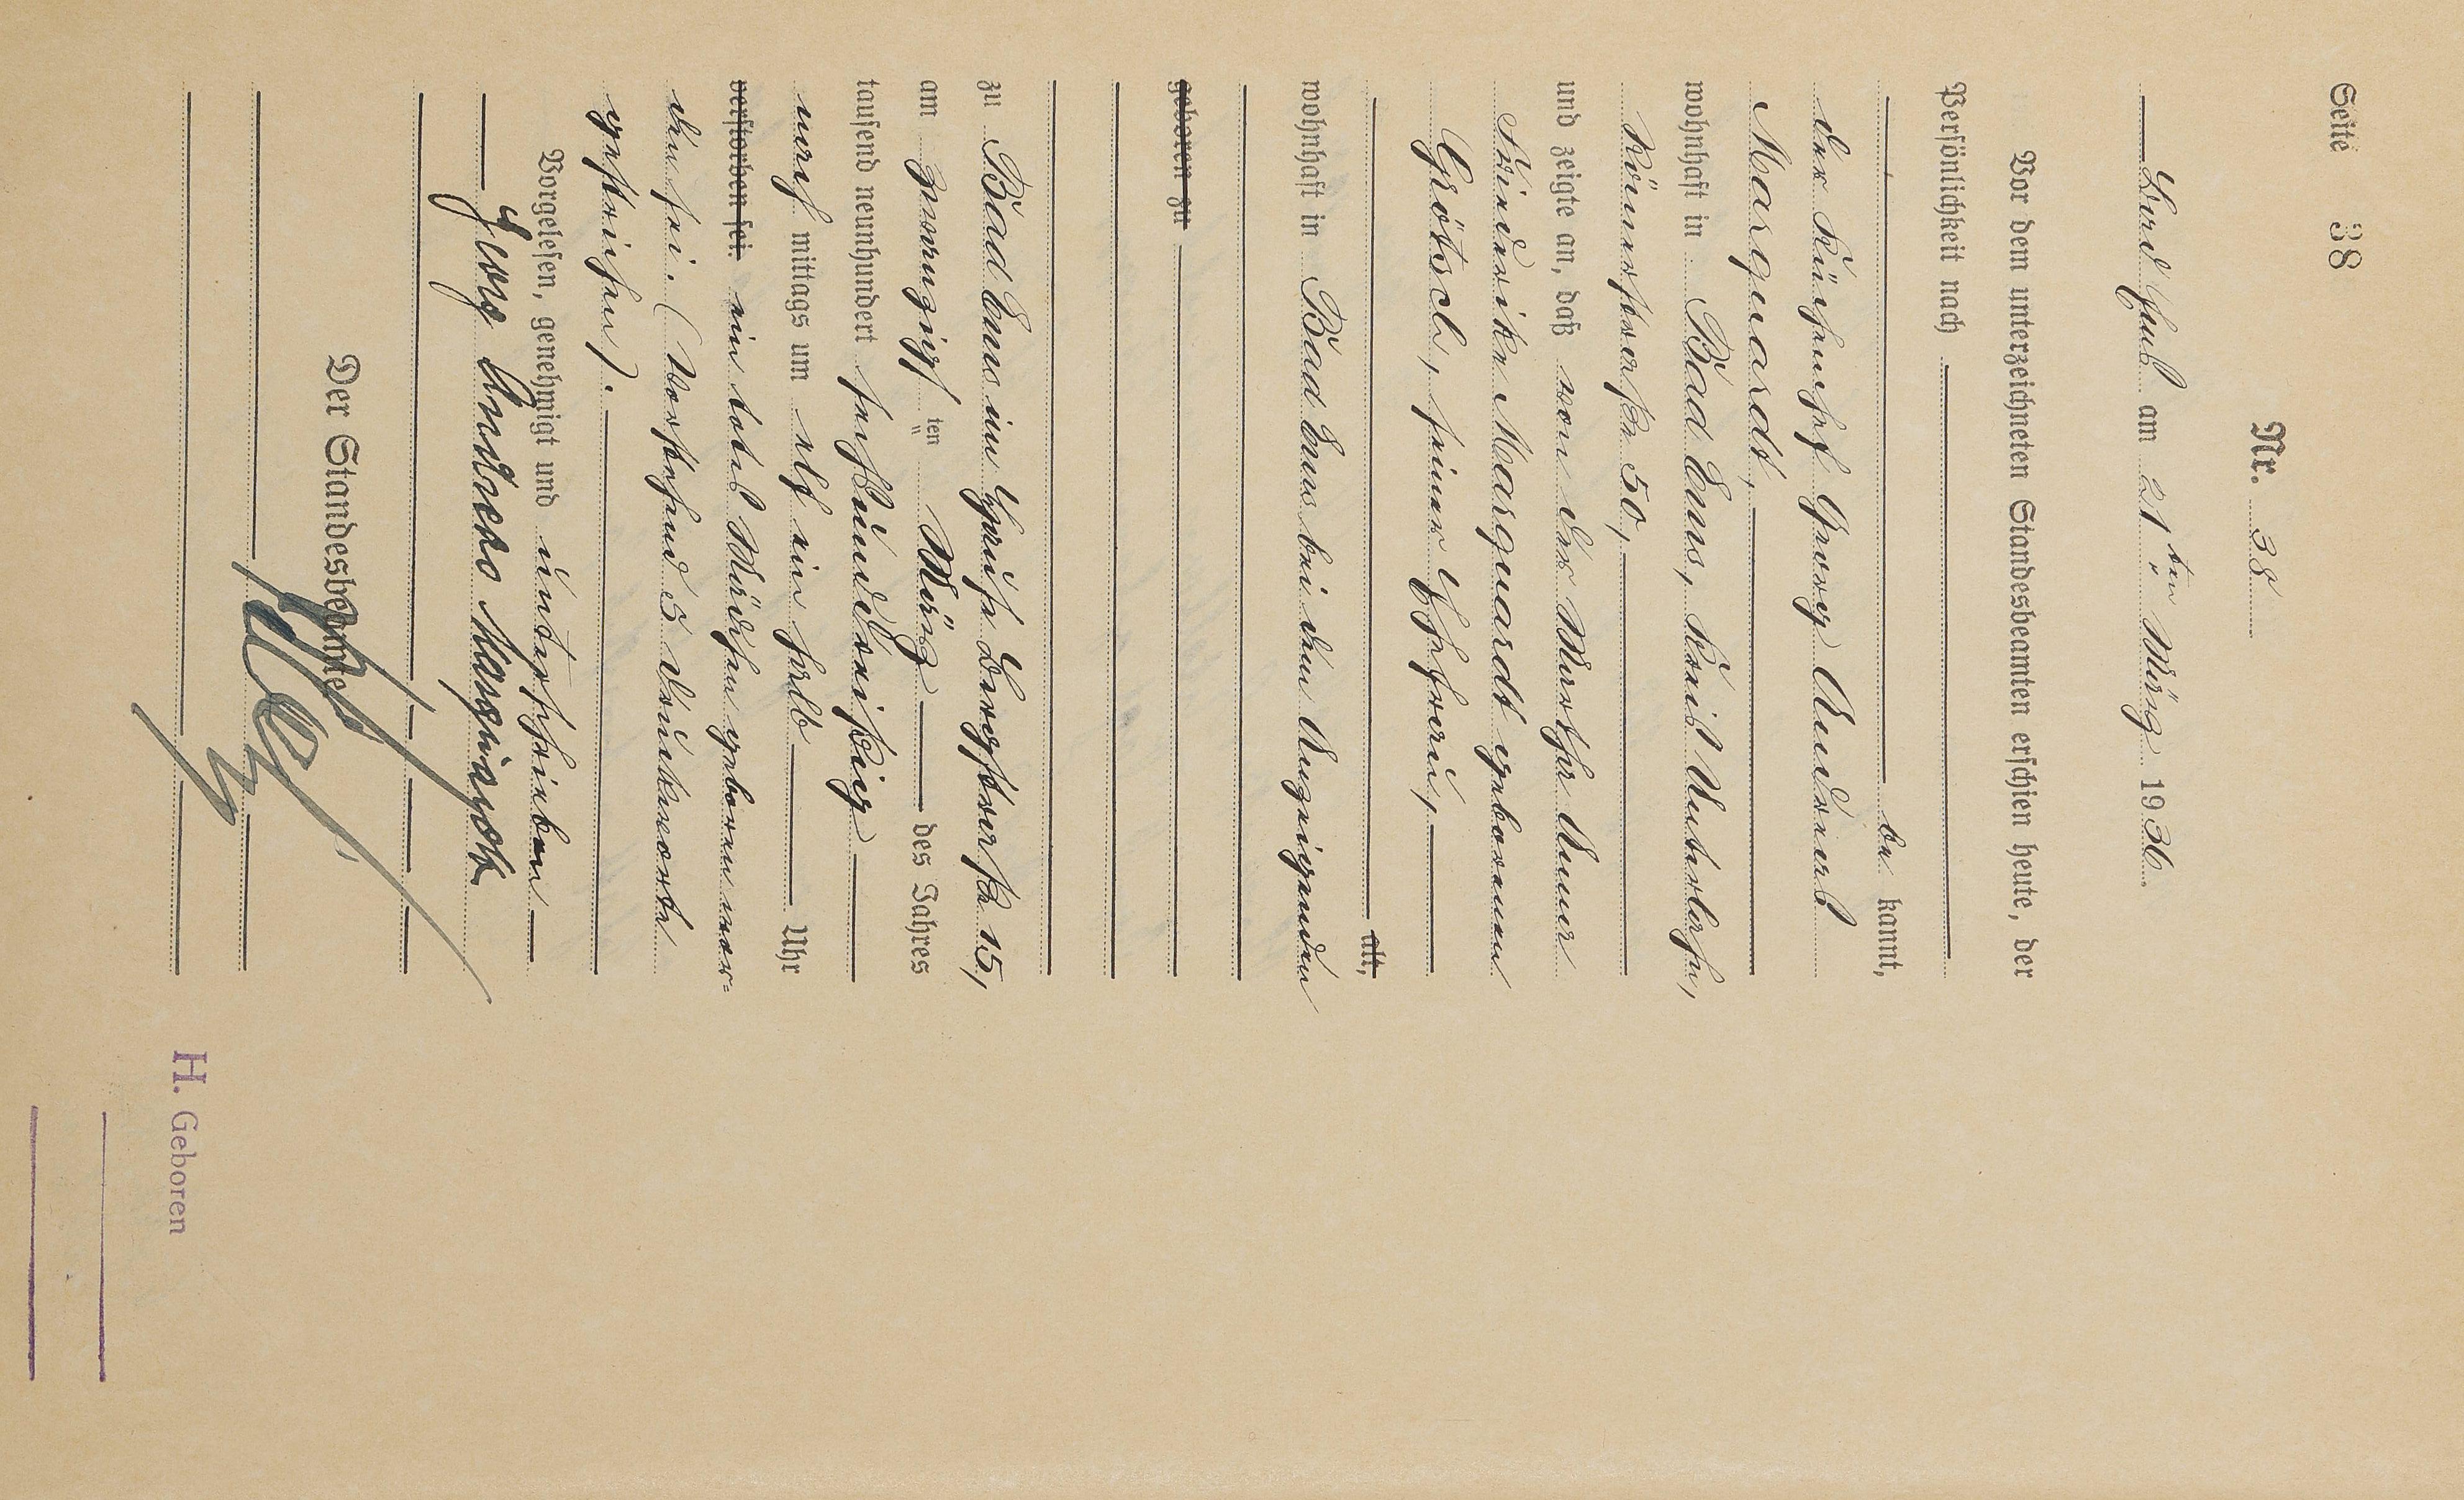 Seite 38
Nr. 38
Bad Ems am 21ten März 1936.
Vor dem unterzeichneten Standesbeamten erschien heute, der
Persönlichkeit nach
be kannt,
der Küchenchef Georg Andreas
Marquardt,
wohnhaft in Bad Ems, Kreis Unterlahn,
Römerstraße 50,
und zeigte an, daß von der Martha Anna
Friederike Marquardt geborenen
Grötsch, seiner Ehefrau,
alt,
wohnhaft in Bad Ems bei dem Anzeigenden
geboren zu
zu Bad Ems im Hause Bergstraße 15,
am zwanzigsten März des Jahres
tausend neunhundert sechsunddreißig
nach mittags um elf ein halb Uhr
verstorben sei. ein totes Mädchen geboren wor-
den sei. (Vorstehend 5 Druckworte
gestrichen).
Vorgelesen, genehmigt und unterschrieben
Georg Andreas Marquardt
Der Standesbeamte
H. Geboren